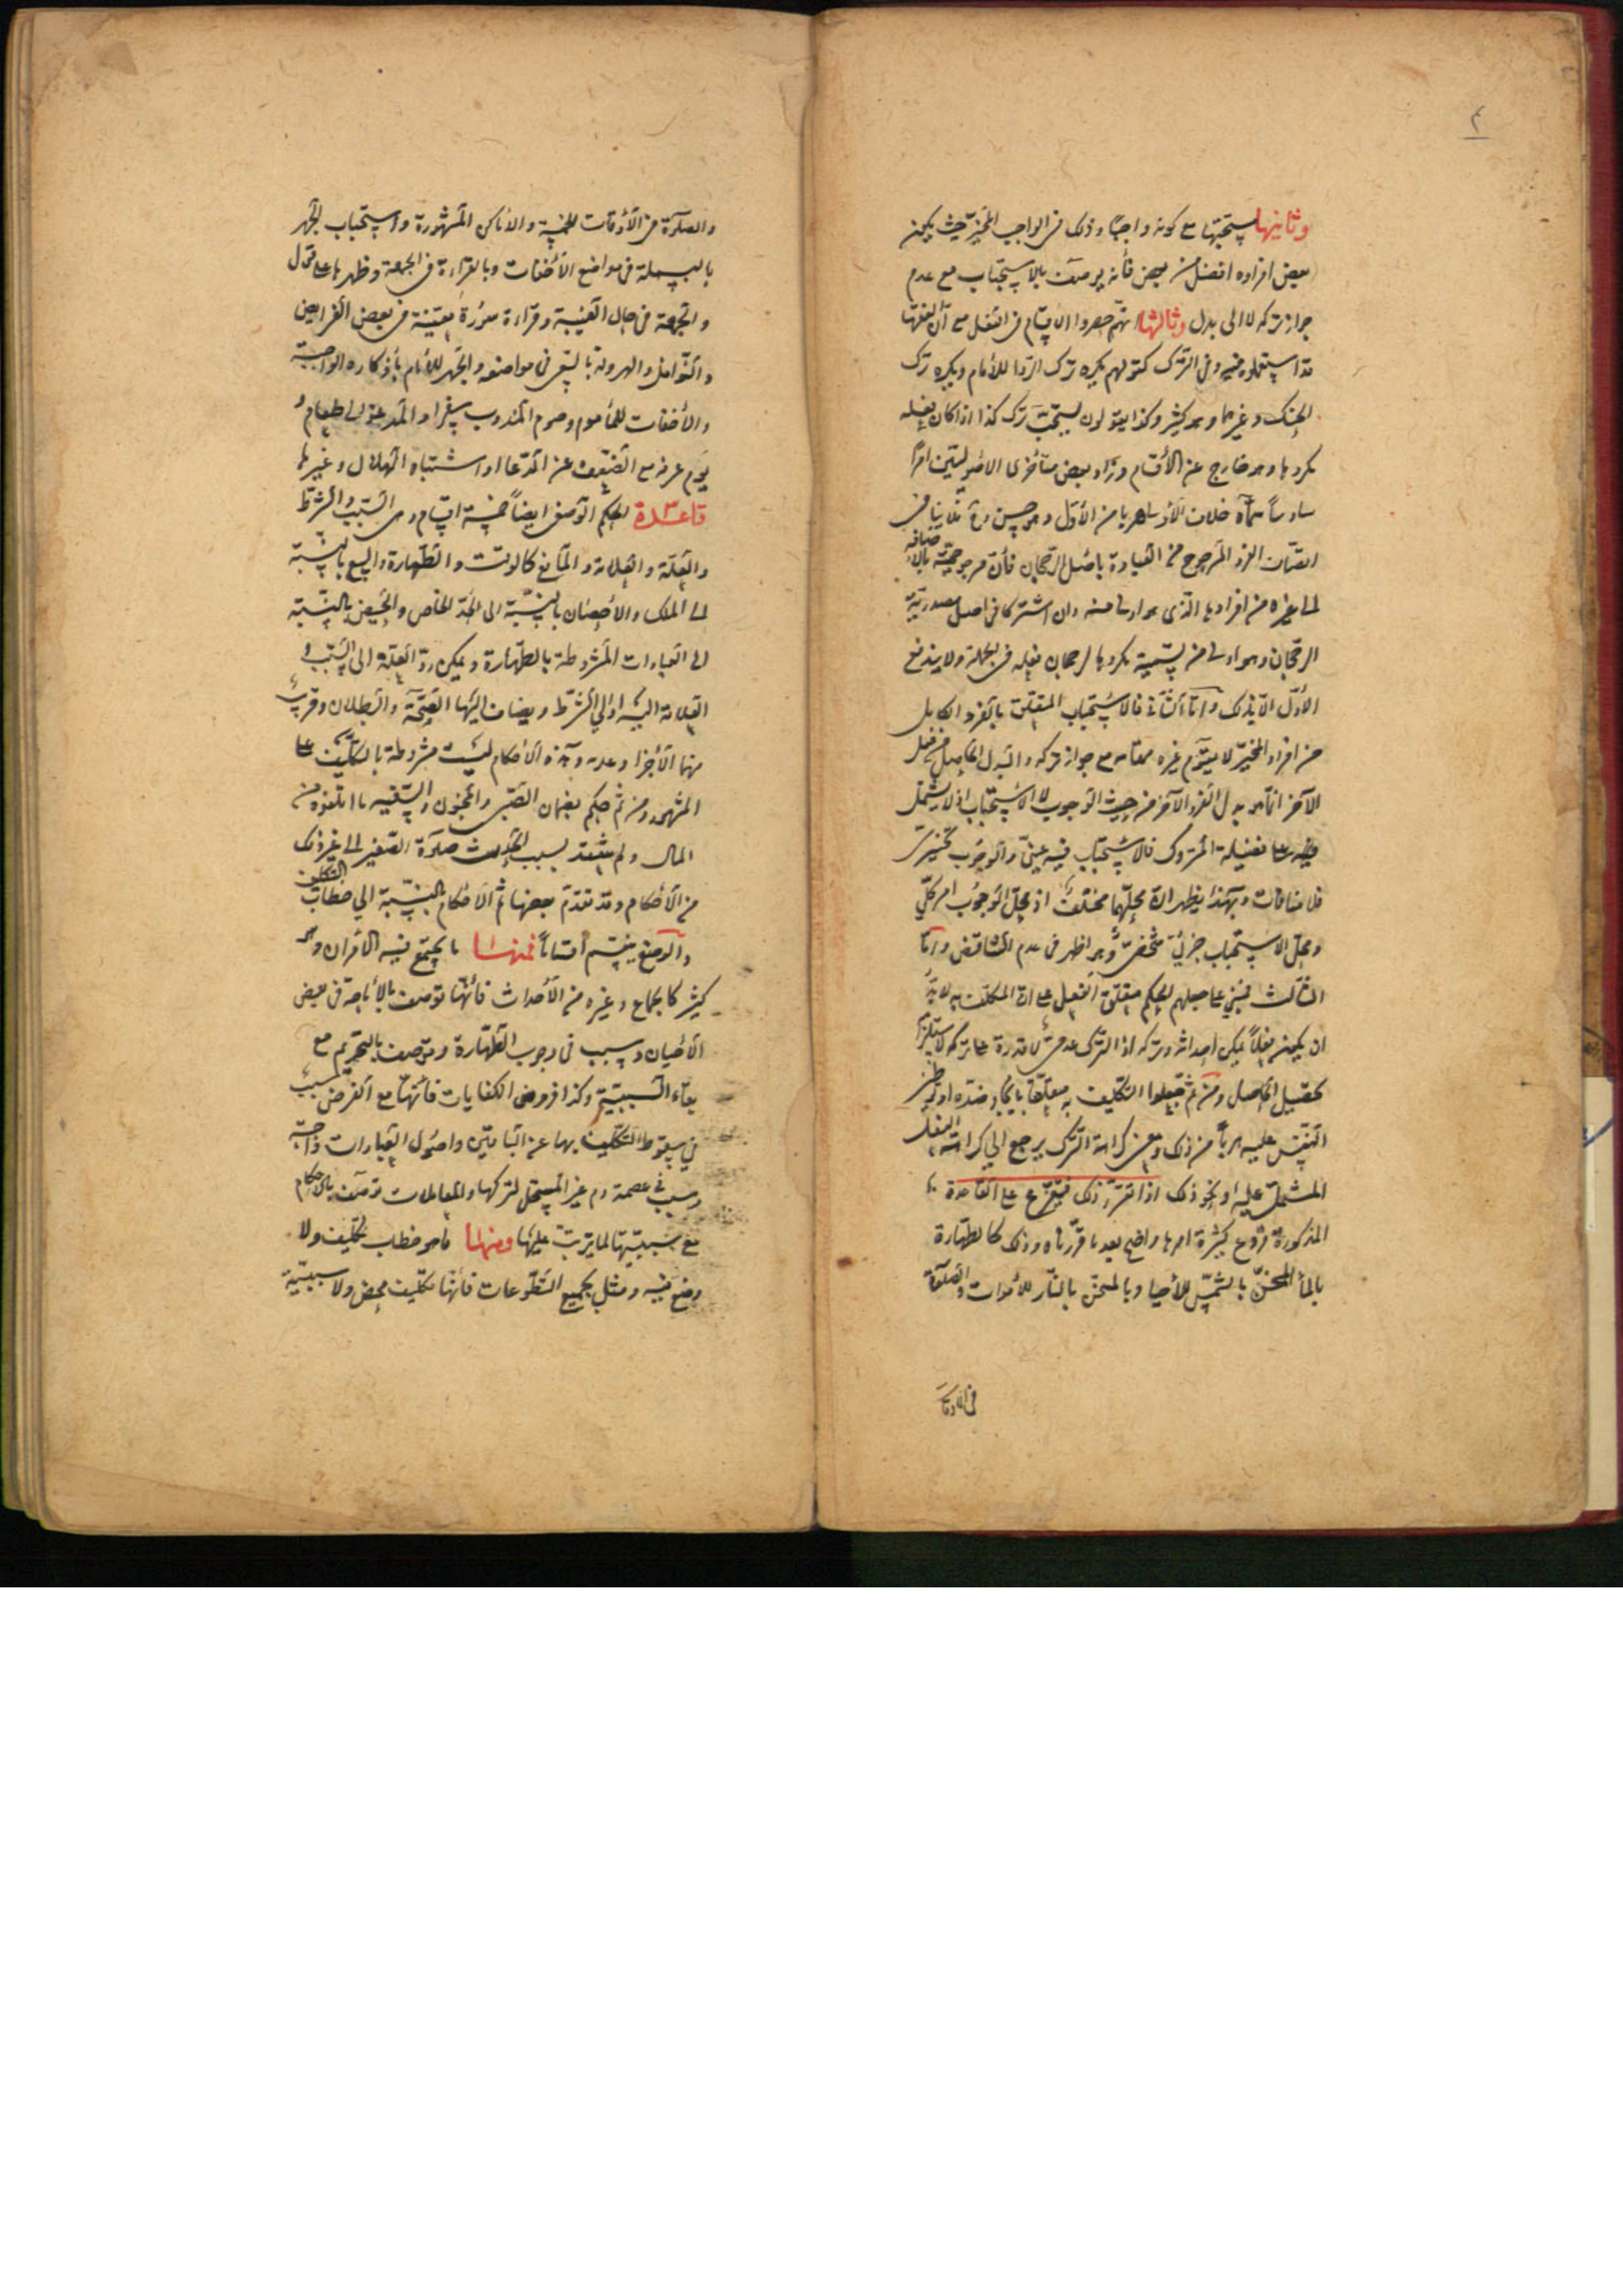 ٤
وثانيها يستحبها مع كونه واجبا وذلك في الواجب المخير حيث يكون
بعض افراده افضل من بعض فأنه يوصف بالاستحباب مع عدم
جواز تركه لا الى بدل وثالثها انهم حصروا الاقسام في الفعل مع أن بعضها
قد استعملوه فيه وفي الترك كقولهم يكره ترك الردا للأمام ويكره ترك
الحنك وغيرهما وهو كثير وكذا يقولون يستحب ترك كذا اذا كان فعله
مكروها وهو خارج عن الأقسام وزاد بعض متأخري الاصوليين امرا
سادسا سماه خلاف الأولى هربا من الأول وهو حسن
اتصاف الفرد المرجوح من العبادة بأصل الرجحان فأن مرجوحيته بالاضافه
الى غيره من افرادها الذي هو اولى منه وان اشتركا في اصل
الرجحان وهو اولى من تسمية مكروها لرجحان فعله في الجملة ولا يندفع
الأول الا بذلك واما الثاني فالاستحباب المتعلق بالفرد الكامل
من افراد المخير لا يقوم غيره مقامه مع جواز تركه والبدل الحاصل من فعل
الآخر انما هو بدل الفرد الآخر من حيث الوجوب لا الاستحباب اذ لا يشتمل
على فضيلة المتروك فالاستحباب فيه عيني والوجوب تخييري
فلا منافات وبهذا يظهر ان محلهما مختلف اذ محل الوجوب امر كلي
ومحل الاستحباب جزئي شخصي وهو اظهر في عدم التناقض واما
الثالث فمبني على جعلهم الحكم متعلق الفعل على ان المكلف به لا بد
ان يكون فعلا يمكن احداثه وتركه اذ الترك عدمي لا قدرة على تركه لاستلزام
تحصيل الحاصل ومن ثم جعلوا التكليف به متعلقا بايجاد ضده او توطين
النفس عليه هربا من ذلك ومعنى كراهة الترك يرجع الى كراهة الفعل
المشتمل عليه او نحو ذلك اذا تقرر ذلك فيتفرع على القاعدة
المذكورة فروع كثيرة امرها واضح بعد ما قررناه وذلك كالطهارة
بالمأ المسخن بالشمس للأحيا وبالمسخن بالنار للأموات والصلوة
في الاوقات
والصلوة في الأوقات الخمسة والاماكن المشهورة واستحباب الجهر
بالبسملة في مواضع الأخفات وبالقراءة في الجمعة وظهرها على قول
والجمعة في حال الغيبة وقراءة سورة معينة في بعض الفرايض
والنوافل والهرولة بالسعي في مواضعه والجهر للأمام بأذكاره الواجبة
والأخفات للمأموم وصوم المندوب سفرا والمدعو الى طعام و
يوم عرفه مع الضعف عن الدعا او اشتباه الهلال وغيرها
قاعدة الحكم الوضعي ايضا خمسة اقسام وهي السبب والشرط
والعلة والعلامة والمانع كالوقت والطهارة والبيع بالنسبة
الى الملك والأحصان بالنسبة الى الحد الخاص والحيض بالنسبة
الى العبادات المشروطة بالطهارة ويمكن رد العلة الى السبب و
العلامة اليه او الى الشرط ويضاف اليها الصحة والبطلان وقريب
منها الأجزا وعدمه وهذه الأحكام ليست مشروطة بالتكليف على
المشهور ومن ثم حكم بضمان الصبي والمجنون والسفيه ما اتلفوه من
المال ولم ينعقد بسبب الحدث صلوة الصغير الى غير ذلك
من الأحكام وقد تقدم بعضها ثم الأحكام بالنسبة الى خطاب التكليف
والوضع ينقسم أقساما فمنها ما يجتمع فيه الأمران وهو
كثير كالجماع وغيره من الأحداث فأنها توصف بالأباحة في بعض
الأحيان وسبب في وجوب الطهارة وتوصف بالتحريم مع
بقاء السببية وكذا فروض الكفايات فأنها مع الفرض سبب
في سقوط التكليف بها عن الباقين واصول العبادات واجبة
وسبب في عصمة دم غير المستحل لتركها والمعاملات توصف بالأحكام
مع سببيتها لما يترتب عليها ومنها ما هو خطاب تكليف ولا
وضع فيه ومثل بجميع التطوعات فأنها تكليف محض ولا سببية